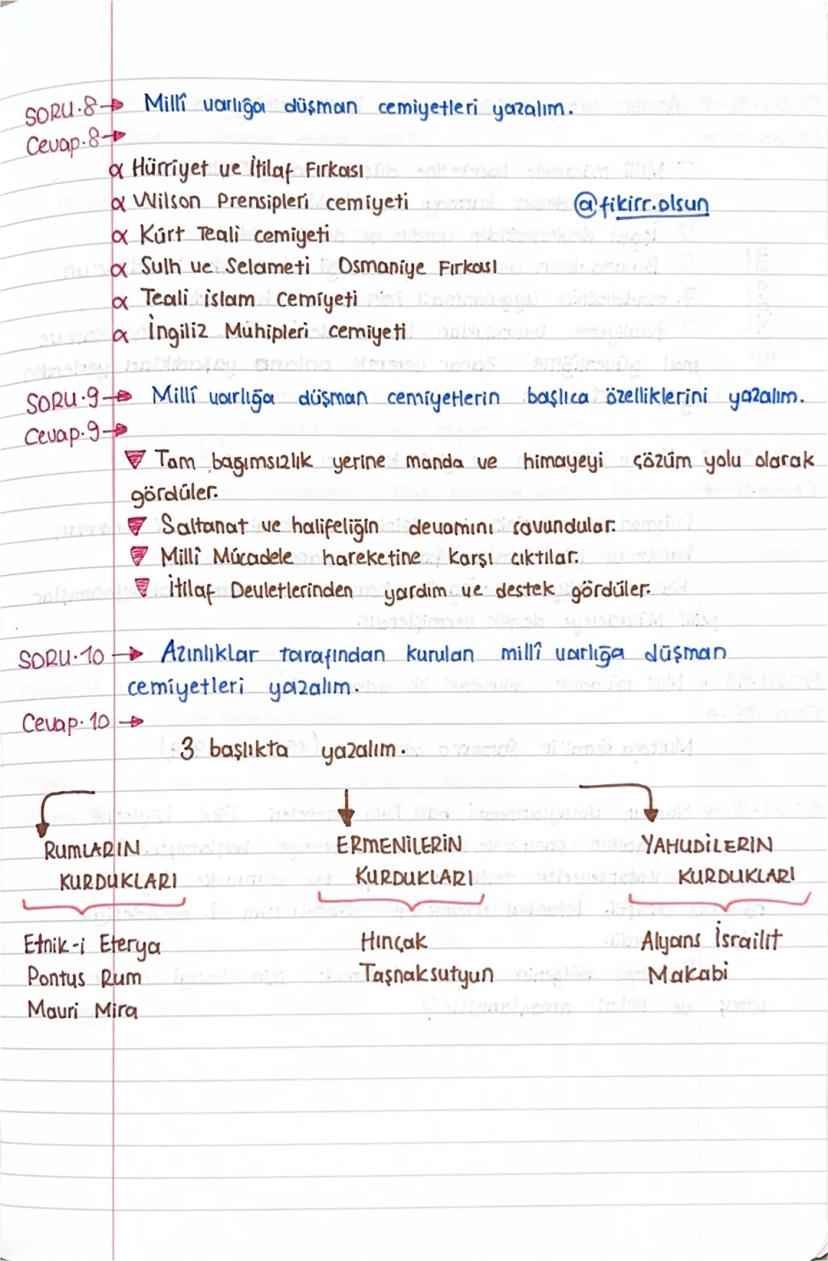 SORU.8→ Millî varlığa düşman cemiyetleri yazalım.
Cevap.8→
α Hürriyet ve İtilaf Fırkası
α Wilson Prensipleri cemiyeti @fikirr.olsun
α Kürt Teali cemiyeti
α Sulh ve Selameti Osmaniye Fırkası
α Teali islam Cemiyeti
α İngiliz Muhipleri cemiyeti
SORU.9→ Millî varlığa düşman cemiyetlerin başlıca özelliklerini yazalım.
Cevap.9→
▼ Tam bağımsızlık yerine manda ve himayeyi çözüm yolu olarak
gördüler.
▼ Saltanat ve halifeliğin devamını savundular.
▼ Millî Mücadele hareketine karşı çıktılar.
▼ İtilaf Devletlerinden yardım ve destek gördüler.
SORU.10 → Azınlıklar tarafından kurulan millî varlığa düşman
cemiyetleri yazalım.
Cevap.10 →
3 başlıkta yazalım.
RUMLARIN ERMENİLERİN YAHUDİLERİN
KURDUKLARI KURDUKLARI KURDUKLARI
Etnik-i Eterya Hınçak Alyans İsrailit
Pontus Rum Taşnaksutyun Makabi
Mavri Mira